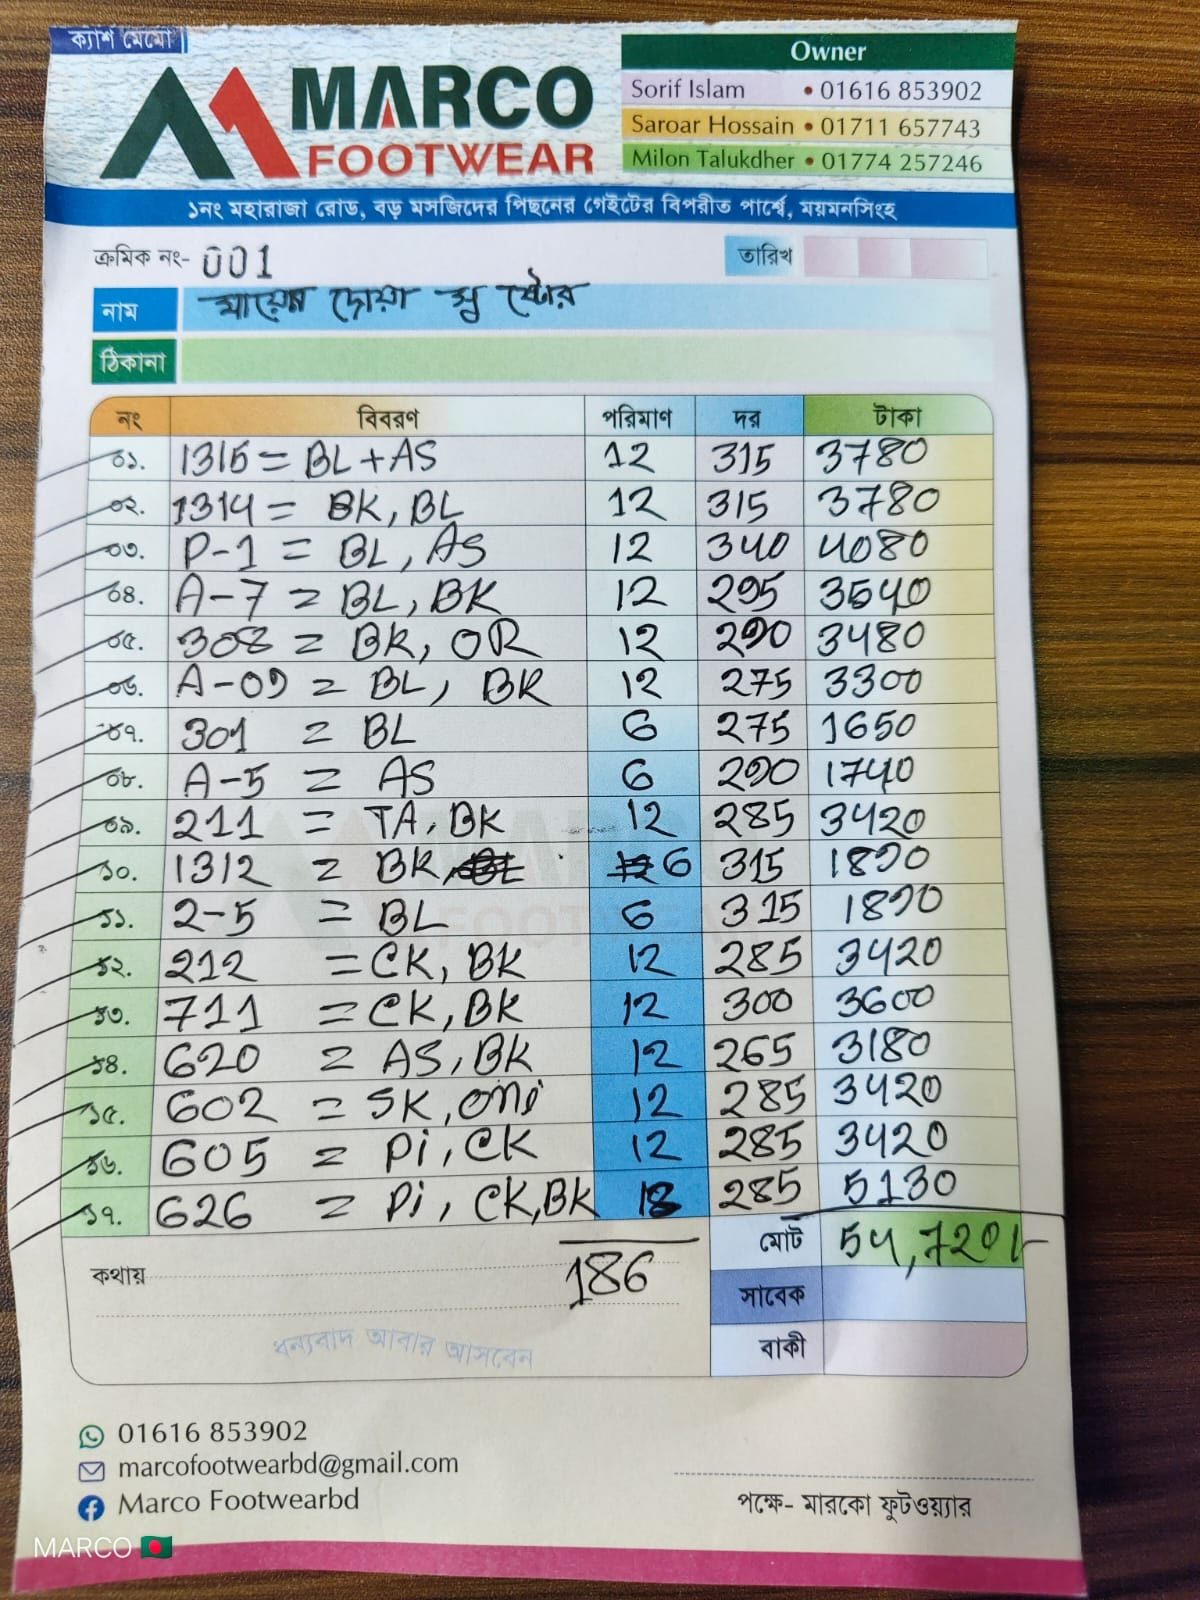 ক্যাশ মেমো
MARCO
FOOTWEAR
Owner
Sorif Islam • 01616 853902
Saroar Hossain • 01711 657743
Milon Talukdher • 01774 257246
১নং মহারাজা রোড, বড় মসজিদের পিছনের গেইটের বিপরীত পার্শ্বে, ময়মনসিংহ
ক্রমিক নং- 001 তারিখ
নাম মায়ের দোয়া সু ষ্টোর
ঠিকানা
নং বিবরণ পরিমাণ দর টাকা
০১. 1315 = BL + AS 12 315 3780
০২. 1314 = BK, BL 12 315 3780
০৩. P-1 = BL, AS 12 340 4080
০৪. A-7 = BL, BK 12 295 3540
০৫. 308 = BK, OR 12 290 3480
০৬. A-09 = BL, BK 12 275 3300
০৭. 301 = BL 6 275 1650
০৮. A-5 = AS 6 290 1740
০৯. 211 = TA, BK 12 285 3420
১০. 1312 = BK, 6 315 1890
১১. 2-5 = BL 6 315 1890
১২. 212 = CK, BK 12 285 3420
১৩. 711 = CK, BK 12 300 3600
১৪. 620 = AS, BK 12 265 3180
১৫. 602 = SK, omi 12 285 3420
১৬. 605 = Pi, CK 12 285 3420
১৭. 626 = Pi, CK, BK 18 285 5130
মোট 54,720/-
কথায় 186
সাবেক
বাকী
ধন্যবাদ আবার আসবেন
01616 853902
marcofootwearbd@gmail.com
Marco Footwearbd
পক্ষে- মারকো ফুটওয়্যার
MARCO 🇧🇩